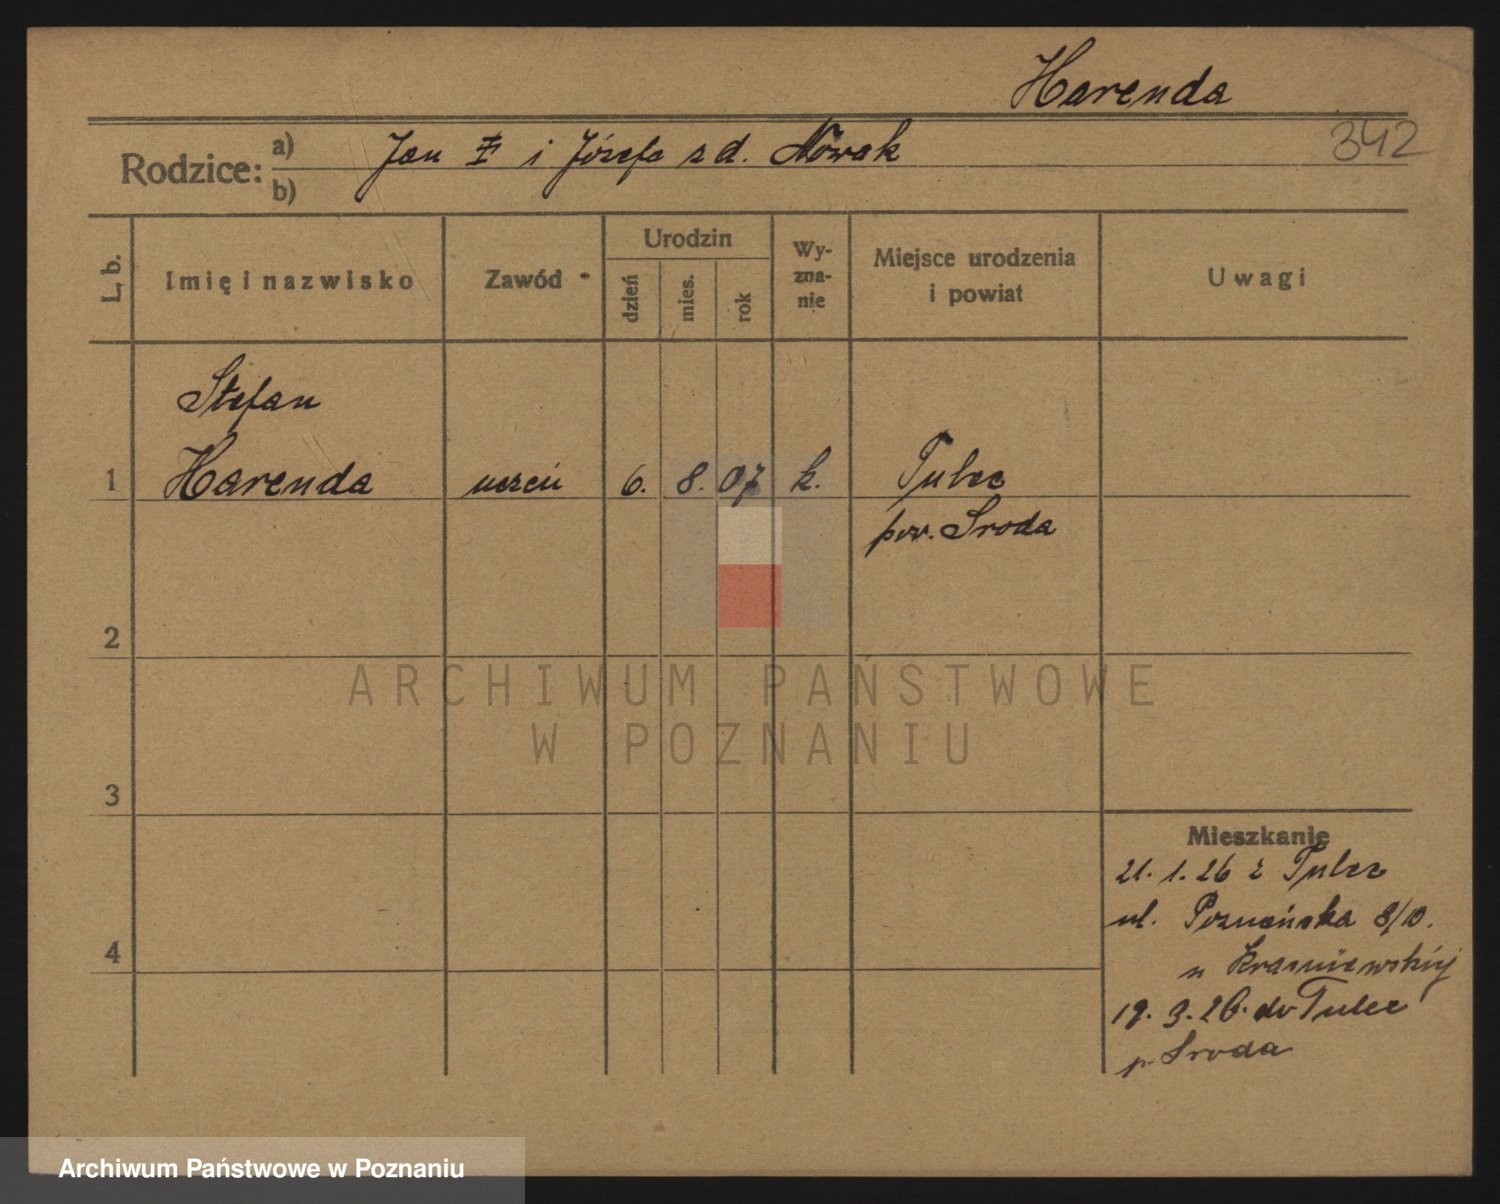 Harenda
342
Rodzice: a) Jan i Józefa z d. Nowak
b)
L. b.
Imię i nazwisko
Zawód
Urodzin
dzień
mies.
rok
Wy-
zna-
nie
Miejsce urodzenia
i powiat
Uwagi
Stefan
1 Harenda uczeń 6. 8. 07 k. Tulce
pow. Sroda
2
3
4
ARCHIWUM PAŃSTWOWE
W POZNANIU
Mieszkanie
21. 1. 26 z Tulce
ul. Poznańska 8/10.
u Kraśniewskiej
19. 3. 26. do Tulce
p. Sroda
Archiwum Państwowe w Poznaniu